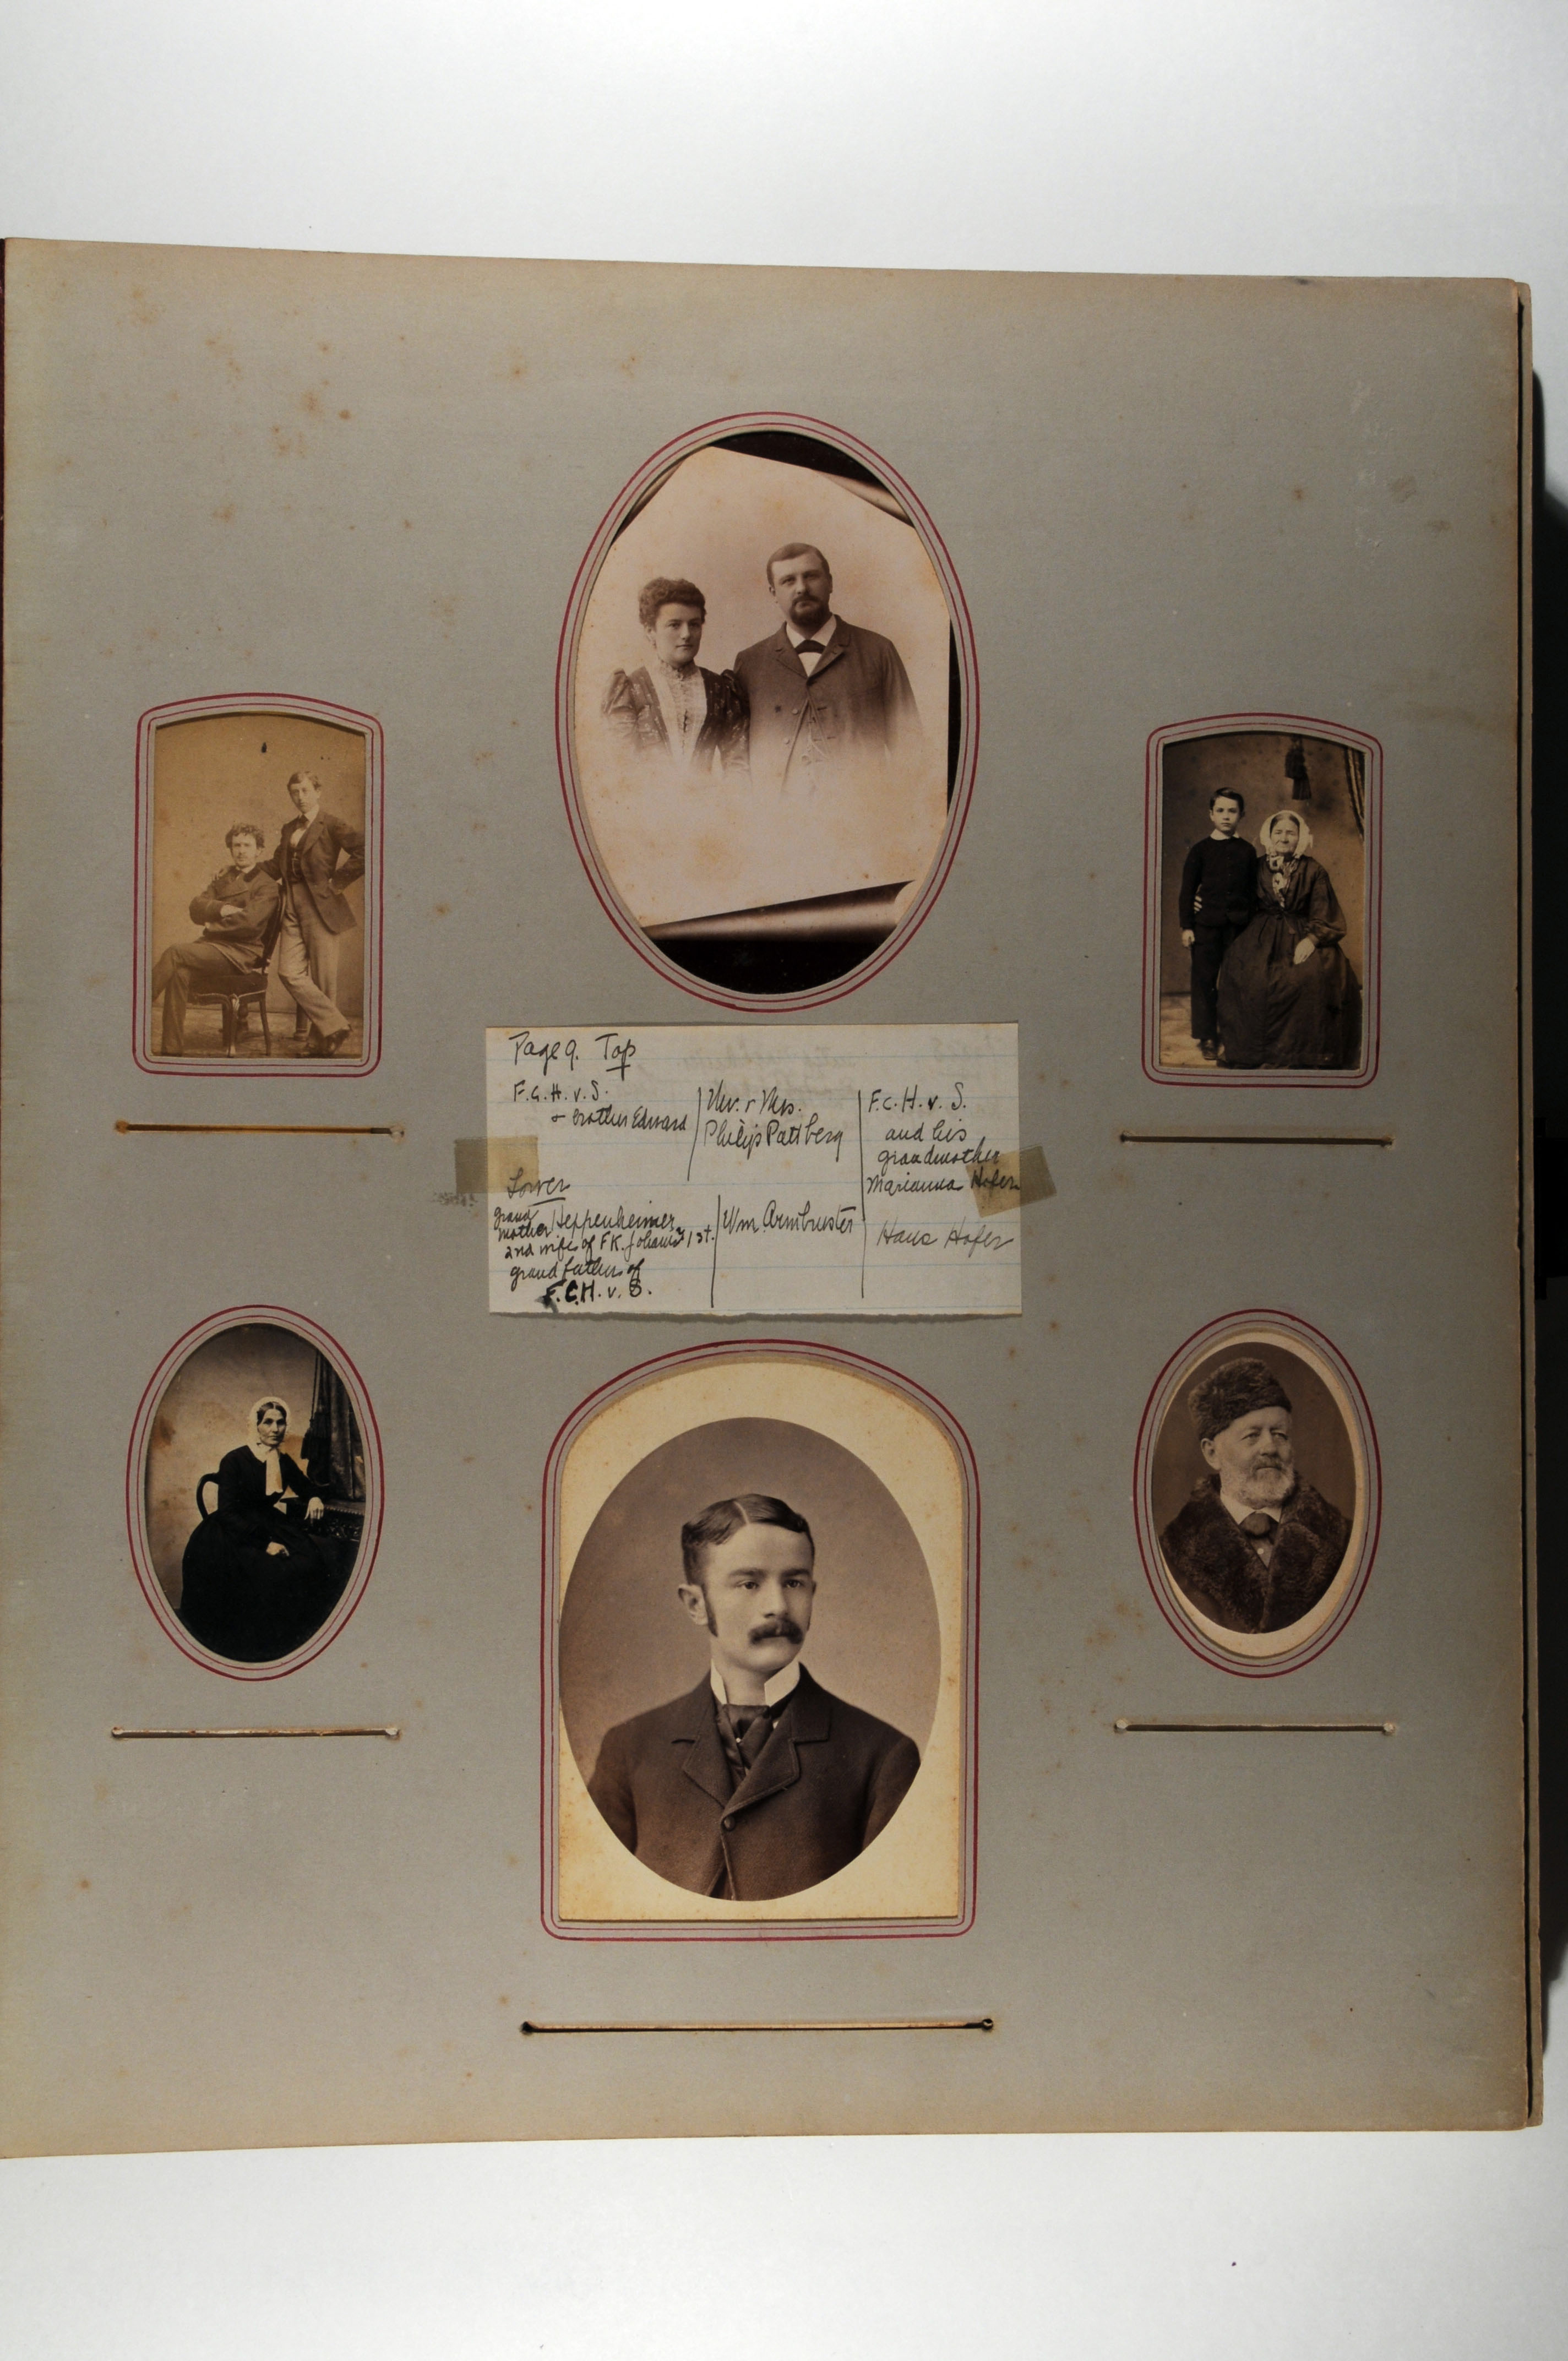 Page 9. Top
F.G.H.v.S.
+ brother Edward
Mr. + Mrs.
Philip Pattberg
F.C.H.v.S.
and his
grandmother
Marianna Hofer
Lower
grand
mother Heppenheimer
2nd wife of F.K. 1st.
grand father of
F.C.H.v.S.
Wm. Armbruster
Hans Hofer